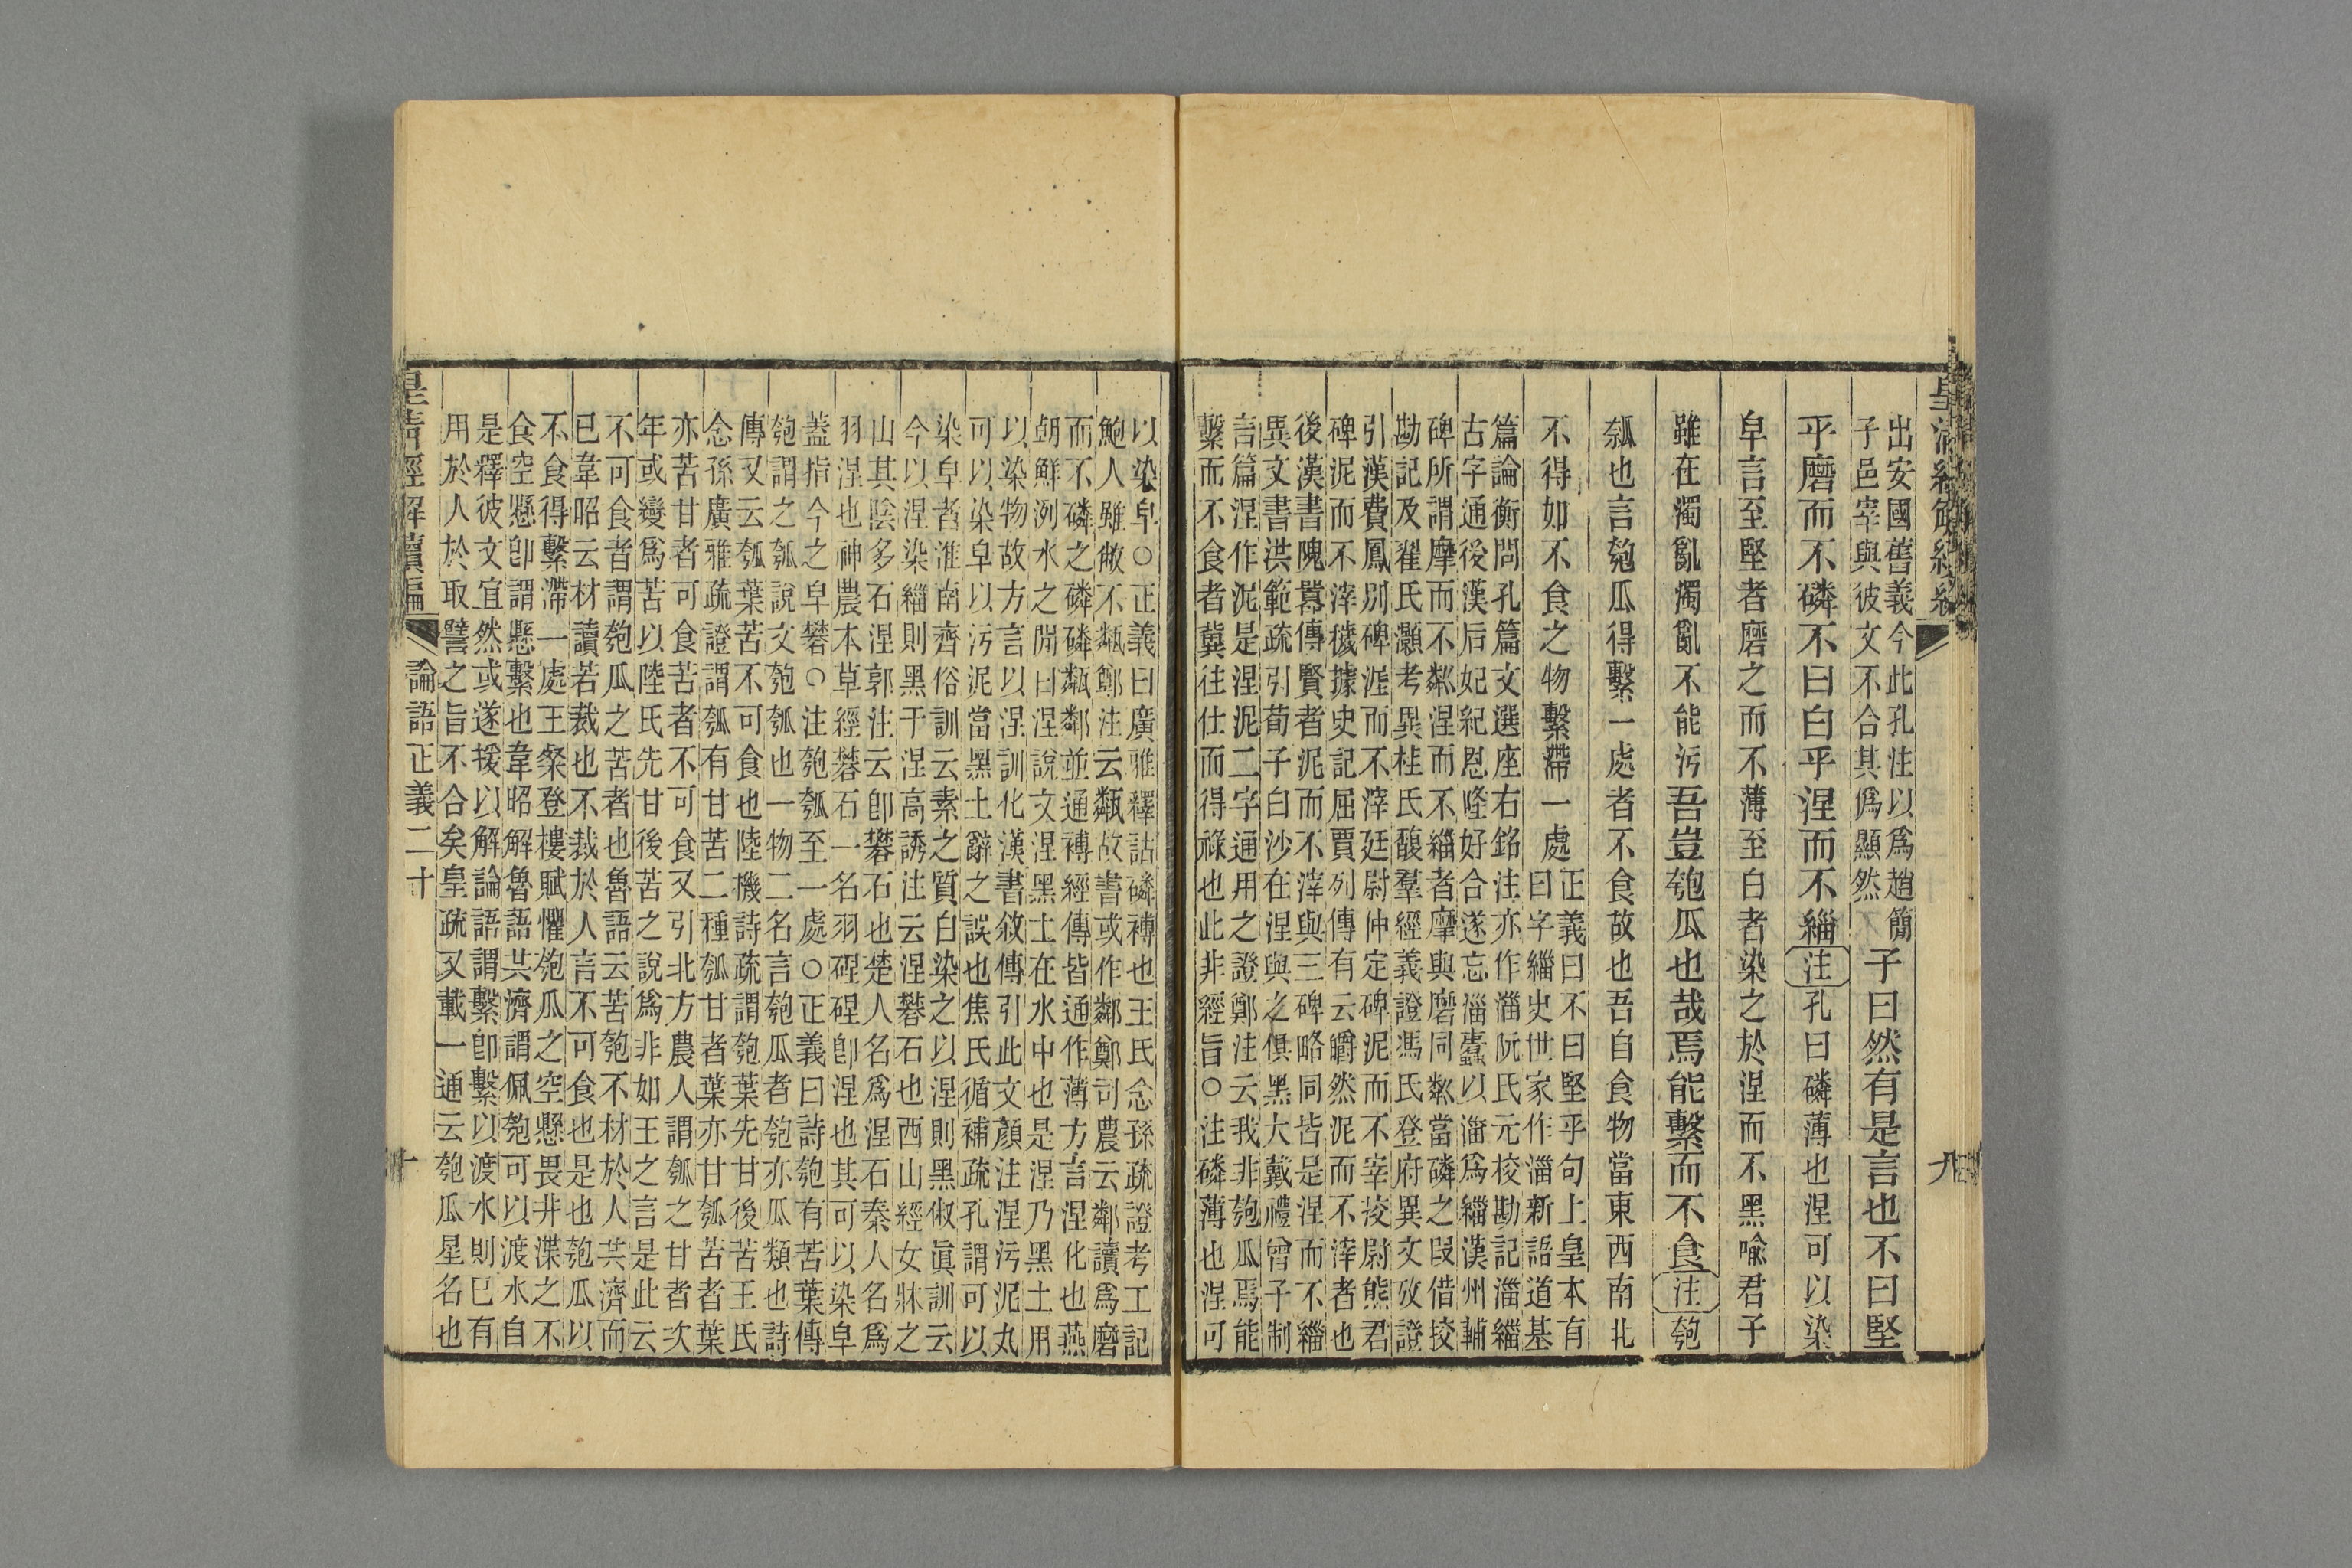 皇清經解續編
九
出安國舊義今此孔注以爲趙簡
子邑宰與彼文不合其僞顯然
子曰然有是言也不曰堅
乎磨而不磷不曰白乎涅而不緇注孔曰磷薄也涅可以染
皁言至堅者磨之而不薄至白者染之於涅而不黑喻君子
雖在濁亂濁亂不能污吾豈匏瓜也哉焉能繫而不食注匏
瓠也言匏瓜得繫一處者不食故也吾自食物當東西南北
不得如不食之物繫滯一處
正義曰不曰堅乎句上皇本有
曰字緇史世家作淄新語道基
篇論衡問孔篇文選座右銘注亦作淄阮氏元校勘記淄緇
古字通後漢后妃紀恩隆好合遂忘淄蠹以淄爲緇漢州輔
碑所謂摩而不粼涅而不緇者摩與磨同粼當磷之叚借挍
勘記及翟氏灝考異桂氏馥羣經義證馮氏登府異文攷證
引漢費鳳別碑涯而不滓廷尉仲定碑泥而不宰挍尉熊君
碑泥而不滓穢據史記屈賈列傳有云皭然泥而不滓者也
後漢書隗囂傳賢者泥而不滓與三碑略同皆是涅而不緇
異文書洪範疏引荀子白沙在涅與之俱黑大戴禮曾子制
言篇涅作泥是涅泥二字通用之證鄭注云我非匏瓜焉能
繫而不食者冀往仕而得祿也此非經旨○注磷薄也涅可
以染皁○正義曰廣雅釋詁磷禣也王氏念孫疏證考工記
鮑人雖敝不甐鄭注云甐故書或作鄰鄭司農云鄰讀爲磨
而不磷之磷磷甐鄰並通禣經傳皆通作薄方言涅化也燕
朝鮮洌水之閒曰涅說文涅黑土在水中也是涅乃黑土用
以染物故方言以涅訓化漢書敘傳引此文顏注涅污泥丸
可以染皁以污泥當黑土辭之誤也焦氏循補疏孔謂可以
染皁者淮南齊俗訓云素之質白染之以涅則黑俶眞訓云
今以涅染緇則黑于涅高誘注云涅礬石也西山經女牀之
山其陰多石涅郭注云卽礬石也楚人名爲涅石秦人名爲
羽涅也神農本草經礬石一名羽硂硂卽涅也其可以染皁
蓋指今之皁礬○注匏瓠至一處○正義曰詩匏有苦葉傳
匏謂之瓠說文匏瓠也一物二名言匏瓜者匏亦瓜類也詩
傳又云瓠葉苦不可食也陸機詩疏謂匏葉先甘後苦王氏
念孫廣雅疏證謂瓠有甘苦二種瓠甘者葉亦甘瓠苦者葉
亦苦甘者可食苦者不可食又引北方農人謂瓠之甘者次
年或變爲苦以陸氏先甘後苦之說爲非如王之言是此云
不可食者謂匏瓜之苦者也魯語云苦匏不材於人共濟而
已韋昭云材讀若裁也不裁於人言不可食也是也匏瓜以
不食得繫滯一處王粲登樓賦懼匏瓜之空懸畏井渫之不
食空懸卽謂懸繫也韋昭解魯語共濟謂佩匏可以渡水自
是釋彼文宜然或遂援以解論語謂繫卽繫以渡水則已有
用於人於取譬之旨不合矣皇疏又載一通云匏瓜星名也
皇清經解續編
論語正義二十
十